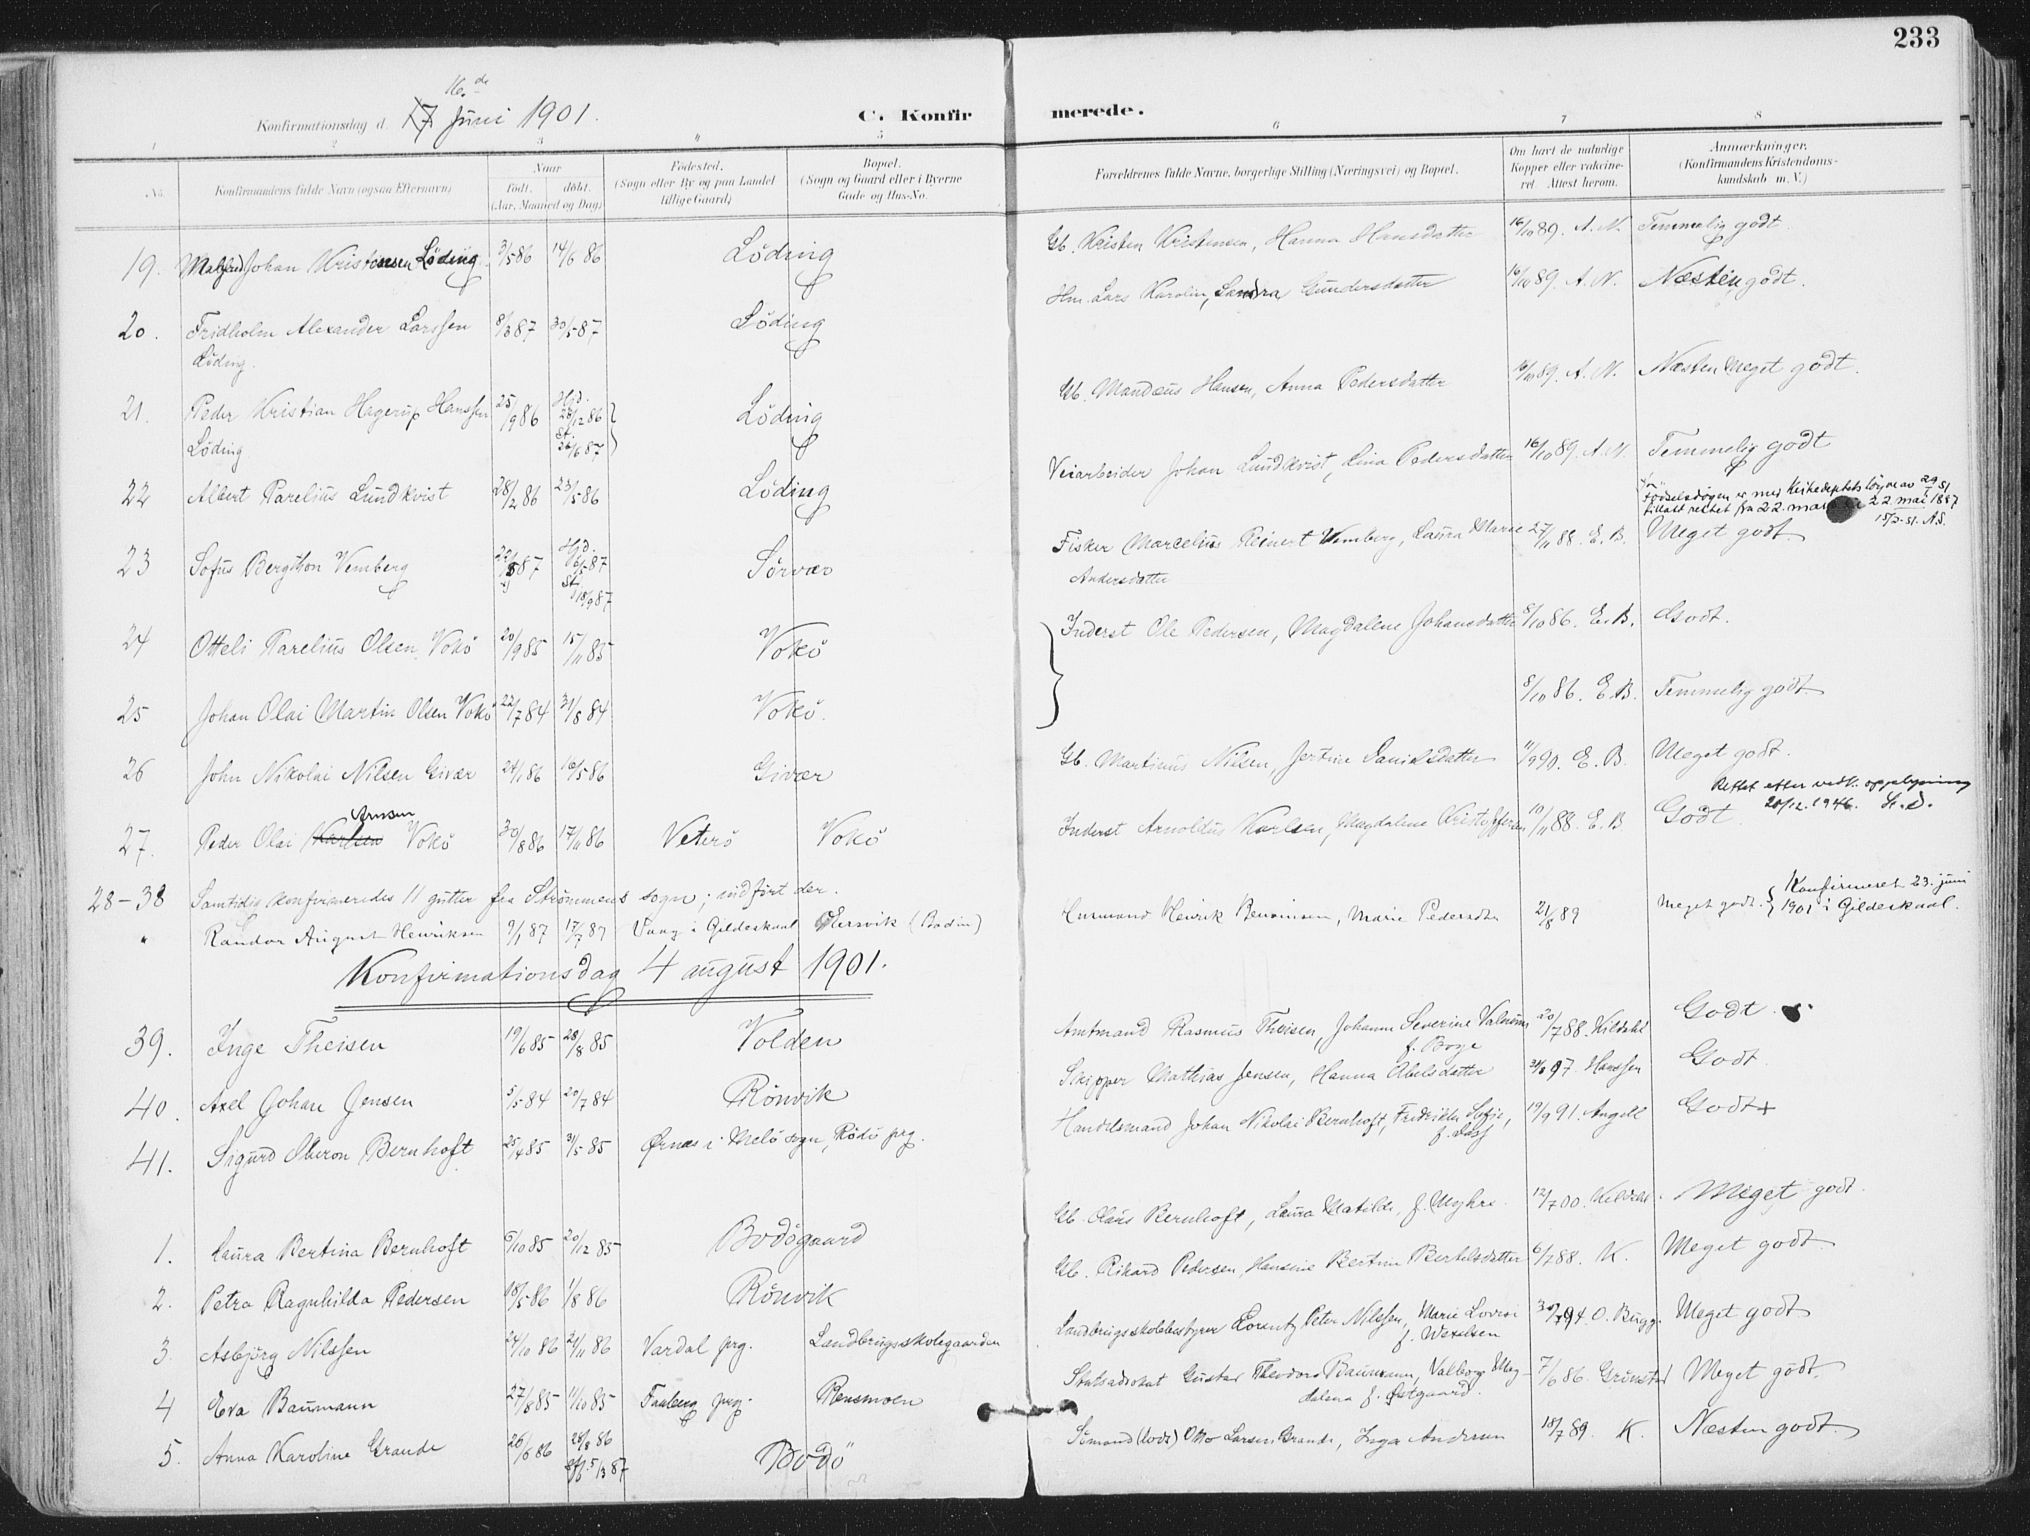 233
16. de
Konfirmationsdag d. 17 Juni 1901.
C. Konfirmerede.
1 2 3 4 5 6 7 8
No. Konfirmandens fulde Navn (ogsaa Efternavn)
Naar født. døbt. (Aar, Maaned og Dag)
Fødested. (Sogn eller By og paa Landet tillige Gaard)
Bopæl. (Sogn og Gaard eller i Byerne Gade og Hus-No.
Forældrenes fulde Navne, borgerlige Stilling (Næringsvei) og Bopæl.
Om havt de naturlige Kopper eller vakcineret. Attest herom.
Anmærkninger. (Konfirmandens Kristendomskundskab m. V.)
19. Malfred Johan Kristensen Löding 3/5 86 14/6 86 Löding Gb. Kristen Kristensen, Hanna Hansdatter 16/10 89. A. N. Temmelig godt.
20. Fridholm Alexander Larssen 8/3 87 30/5 87 Löding Hm. Lars Karolin, Sandra Gundersdatter 16/10 89. A. N. Næsten godt.
Löding.
21. Peder Kristian Hagerup Hanssen 25/9 86 Hjd. 28/12 86 St. 26/6 87 Löding Gb. Mandeus Hansen, Anna Pedersdatter 16/10 89. A. N. Næsten Meget godt.
Löding
22 Albert Parelius Lundkvist 28/2 86 23/5 86 Löding Veiarbeider Johan Lundkvist, Lina Pedersdatter 16/10 89. A. N. Temmelig godt
Fødselsdagen er med Kirkedeptets løyve av 29/1 51
tillatt rettet fra 22. mars til 22 mai 1887
15/2-51. A.S.
23 Sofus Bergthon Vemberg 22/5 87 Hjd. 6/5 87 St. 18/9 87 Sörvær Fisker Marcelius Reinert Vemberg, Laura Marie 27/11 88. E. B. Meget godt
Andersdatter
24 Otteli Parelius Olsen Vokö 20/9 85 15/11 85 Vokö Inderst Ole Pedersen, Magdalene Johansdatter 8/10 86. E. B. Godt.
25 Johan Olai Martin Olsen Vokö 22/7 84 31/8 84 Vokö. 8/10 86. E. B. Temmelig godt
26 John Nikolai Nilsen Givær 24/1 86 16/5 86 Givær Gb. Martinus Nilsen, Jertine Danielsdatter 11/9 90. E. B. Meget godt.
Rettet efter vedk. opplysning
20/12. 1946.
Arnsen
27. Peder Olai Karlsen Vokö 30/8 86 17/11 86 Veterö Vokö Inderst Arnoldus Karlsen, Magdalene Kristoffersen 10/11 88. E. B. Godt
28–38 Samtidig konfirmeredes 11 gutter fra Strömmens sogn; indfört der.
" Randor August Henriksen 9/1 87 17/7 87 Vaag i Gildeskaal Hersvik (Bodin) Husmand Henrik Benonisen, Marie Pedersdtr 21/8 89 Meget godt. Konfirmeret 23. juni
1901 i Gildeskaal.
Konfirmationsdag 4 august 1901.
39. Inge Theisen 19/6 85 28/8 85 Volden Amtmand Rasmus Theisen, Johanne Severine 20/7 88. Kildahl Godt.
f. Boye
40. Axel Johan Jensen 5/5 84 20/7 84 Rönvik Skipper Mathias Jensen, Hanna Abelsdatter 97. Hanssen Godt.
41. Sigurd Oberon Bernhoft 25/4 85 31/5 85 Ørnes i Melö sogn, Rödö prg. Handelsmand Johan Nikolai Bernhoft, Fredrikke Sofie, 19/9 91. Angell Godt
1. Laura Bertina Bernhoft 6/10 85 20/12 85 Bodögaard Gb. Olaus Bernhoft, Laura Matilde, f. Myhre. 12/7 00. Kildahl. Meget godt.
2. Petra Ragnhilda Pedersen 18/5 86 1/8 86 Rönvik Gb. Rikard Pedersen, Hansine Bertine Bertelsdatter 6/7 88. K. Meget godt.
3. Asbjörg Nilssen 24/10 86 21/11 86 Vardal prg. Landbrugsskolegaarden Landbrugsskolebestyrer Lorentz Peter Nilssen, Marie Lovise 94. O. Bugge. Meget godt
f. Wexelsen
4 Eva Baumann 27/8 85 11/10 85 Faaberg prg. Rensmoen Statsadvokat Gustav Theodor Baumann, Valborg Mag- 7/6 86. Grimstad Meget godt.
dalena f. Østgaard.
5. Anna Karoline Grande 26/6 86 28/8 86 5/3 87 Bodö Sömand (död) Otto Larsen Grande, Inga Andersen 18/7 89. K. Næsten godt.